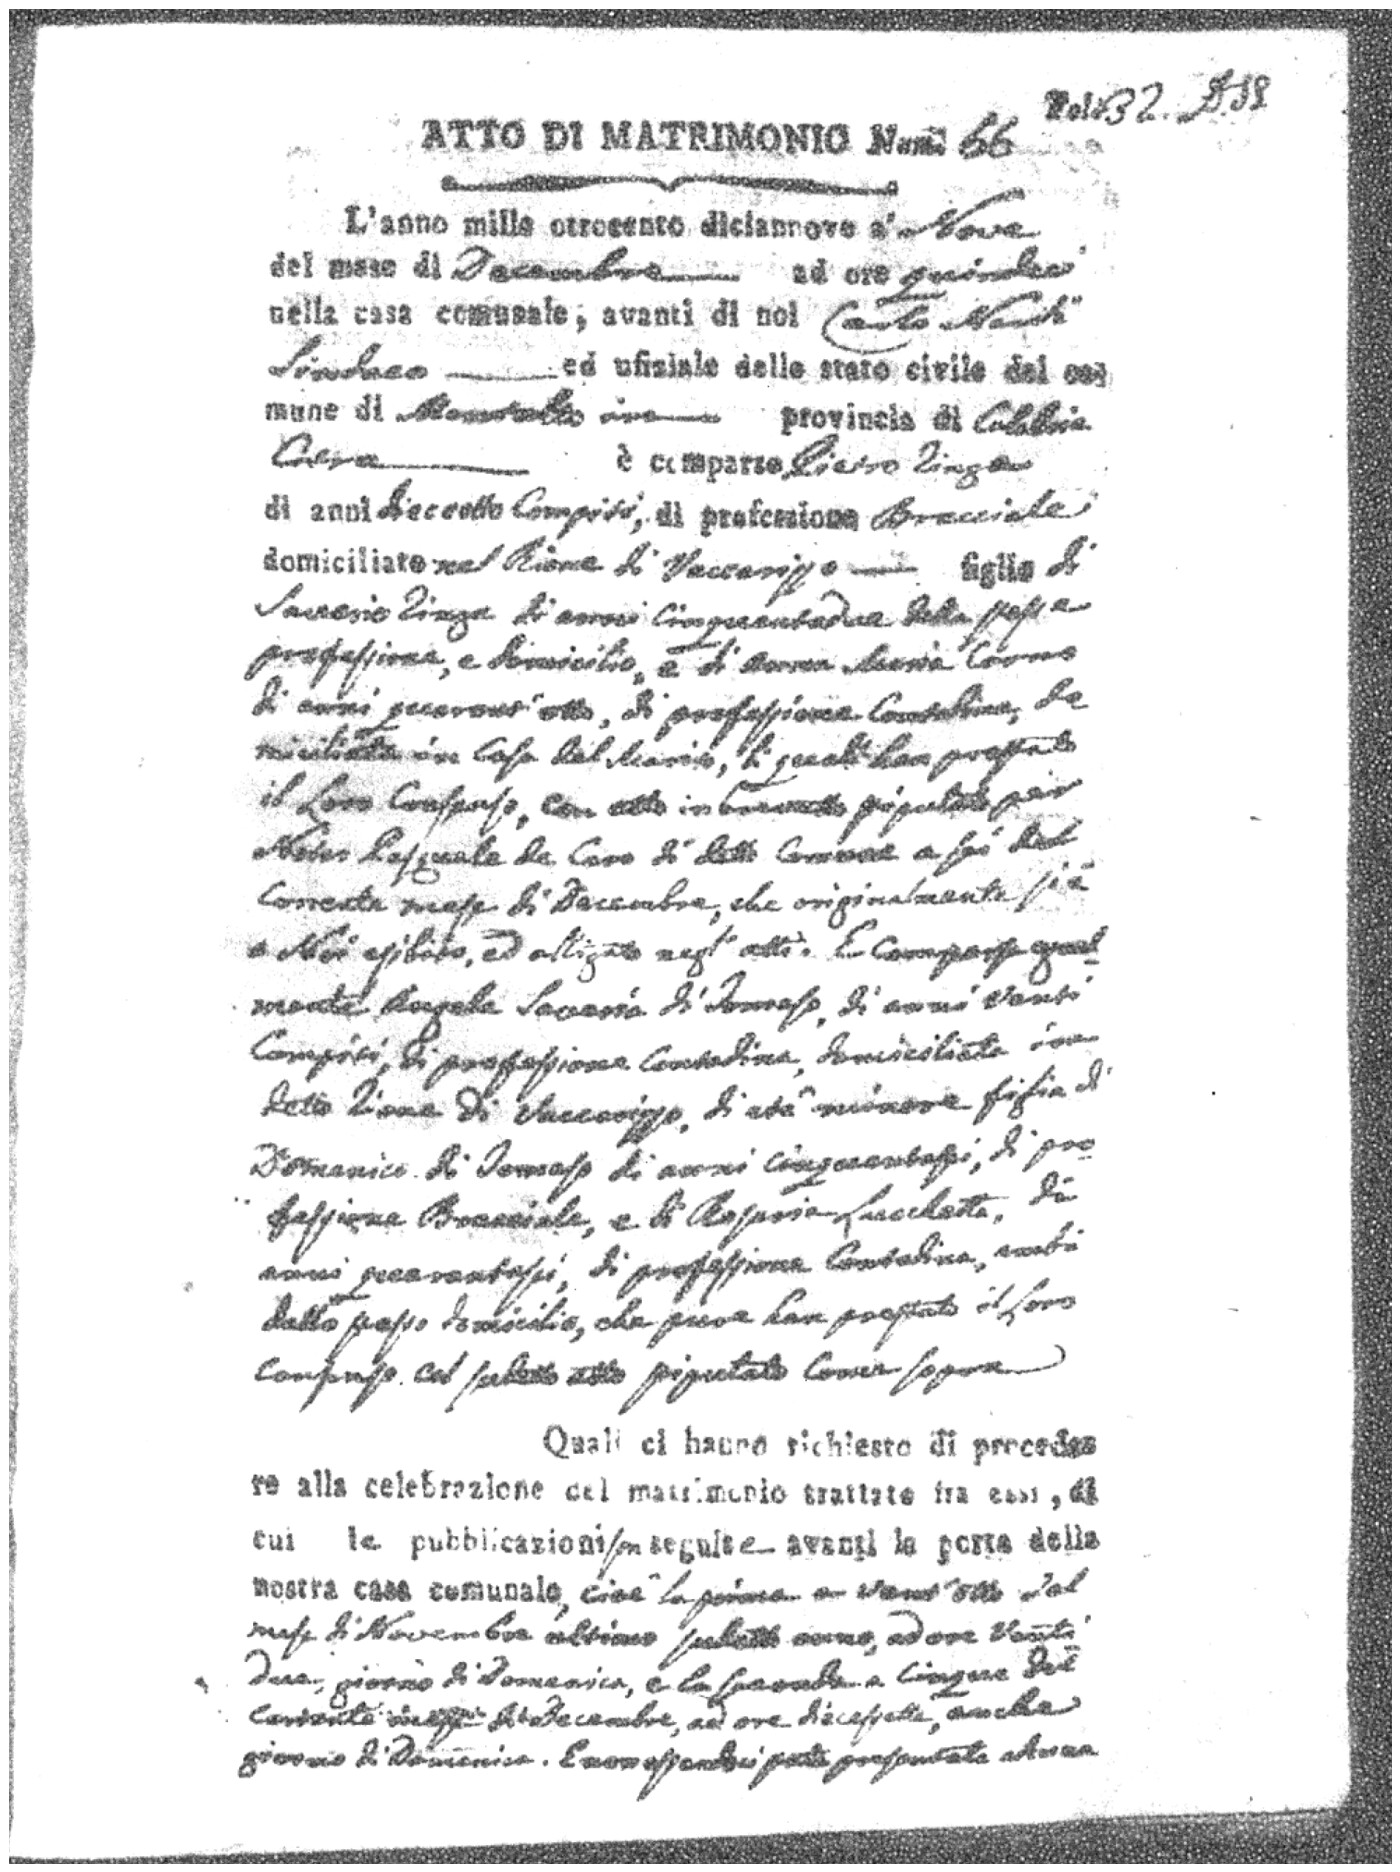 Fol. 32.
ATTO DI MATRIMONIO Num. 66
L'anno mille ottocento diciannove a' Nove
del mese di Decembre ad ore quindeci
nella casa comunale, avanti di noi Carlo
Sindaco ed ufiziale dello stato civile del co=
mune di Montalto in provincia di Calabria
Citra è comparso Pietro Zinga
di anni dieceotto Compiti, di professione Bracciale
domiciliato nel Rione di Vaccarizzo figlio di
Saverio Zinga di anni cinquantadue della stessa
professione, e domicilio, e di Anna Maria Corno
di anni quarant'otto, di professione Contadina, do
miciliata in Casa del Marito, li quali han prestato
il Loro Consenso, con atto in brevetto stipulato per
Notar Pasquale de Caro di detto Comune a sei del
Corrente mese di Decembre, che originalmente si è
a Noi esibito, ed alligato negl'atti. E comparsa egual
mente Angela Saveria di Tomaso, di anni venti
Compiti, di professione Contadina, domiciliata in
detto Rione di Vaccarizzo, di età minore figlia di
Domenico di Tomaso di anni cinquantasei, di pro
fessione Bracciale, e di Rosaria Lucchetta, di
anni quarantasei, di professione Contadina, ambi
dello stesso domicilio, che pure han prestato il Loro
consenso col sudetto atto stipulato come sopra
Quali ci hanno richiesto di procede=
re alla celebrazione del matrimonio trattato fra essi, di
cui le pubblicazioni son seguite avanti la porta della
nostra casa comunale, cioè la prima a vent'otto del
mese di Novembre ultimo sudetto anno, ad ore Venti
due, giorno di Domenica, e la seconda a Cinque del
corrente mese di Decembre, ad ore diecessette, anche
giorno di Domenica. E non essendoci stata presentata alcuna